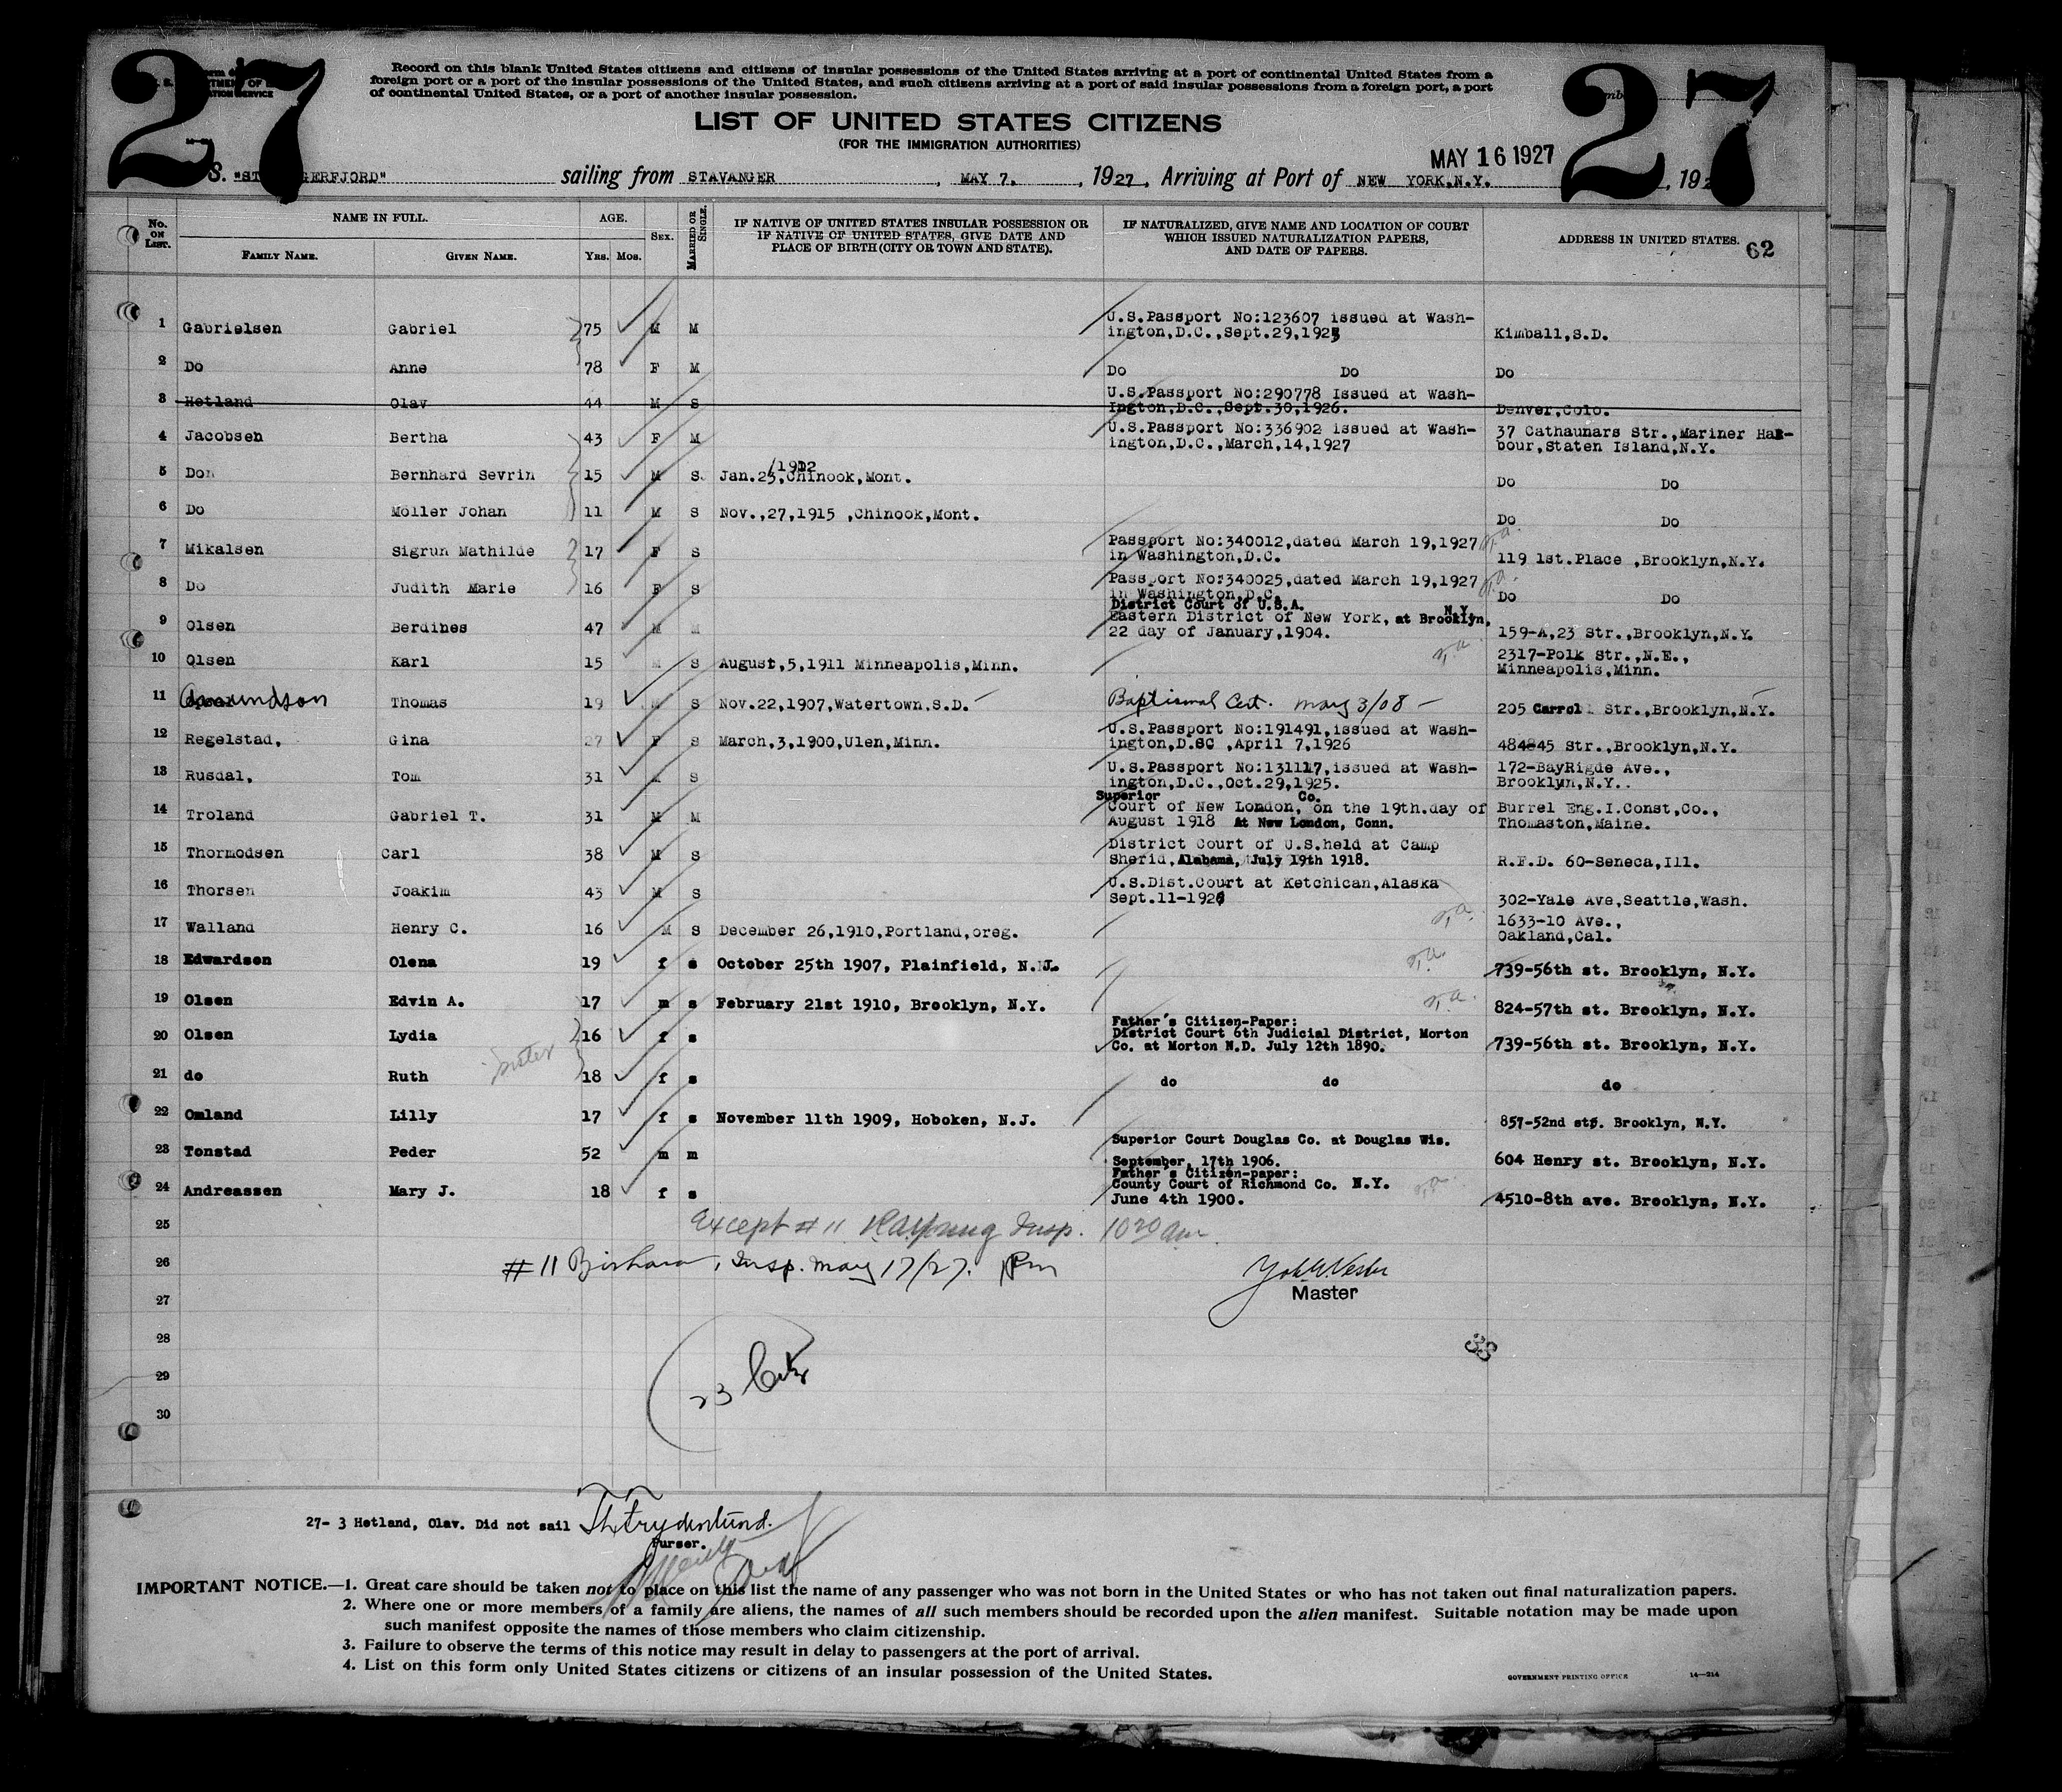 27
27
Record on this blank United States citizens and citizens of insular possessions of the United States arriving at a port of continental United States from a
foreign port or a port of the insular possessions of the United States, and such citizens arriving at a port of said insular possessions from a foreign port, a port
of continental United States, or a port of another insular possession.
LIST OF UNITED STATES CITIZENS
(FOR THE IMMIGRATION AUTHORITIES)
MAY 16 1927
S. "ST GERFJORD" sailing from STAVANGER, MAY 7., 1927, Arriving at Port of NEW YORK,N.Y., 192
No. ON LIST. NAME IN FULL. AGE. SEX. MARRIED OR SINGLE. IF NATIVE OF UNITED STATES INSULAR POSSESSION OR IF NATIVE OF UNITED STATES, GIVE DATE AND PLACE OF BIRTH (CITY OR TOWN AND STATE). IF NATURALIZED, GIVE NAME AND LOCATION OF COURT WHICH ISSUED NATURALIZATION PAPERS, AND DATE OF PAPERS. ADDRESS IN UNITED STATES. 62
FAMILY NAME. GIVEN NAME. YRS. MOS.
1 Gabrielsen Gabriel 75 M M U.S.Passport No:123607 issued at Wash-
ington,D.C.,Sept.29,1925 Kimball,S.D.
2 Do Anne 78 F M Do Do Do
3 Hetland Olav 44 M S U.S.Passport No:290778 Issued at Wash-
Ington,D.C.,Sept.30,1926. Denver,Colo.
4 Jacobsen Bertha 43 F M U.S.Passport No:336902 issued at Wash-
ington,D.C.,March,14,1927 37 Cathaunars Str.,Mariner Har-
bour,Staten Island,N.Y.
5 Do Bernhard Sevrin 15 M S. Jan.23,/1912 Chinook,Mont. Do Do
6 Do Moller Johan 11 M S Nov.,27,1915 ,Chinook,Mont. Do Do
7 Mikalsen Sigrun Mathilde 17 F S Passport No:340012,dated March 19,1927
in Washington,D.C. 119 1st.Place ,Brooklyn,N.Y.
8 Do Judith Marie 16 F S Passport No:340025,dated March 19,1927
in Washington,D.C. Do Do
9 Olsen Berdines 47 M M District Court of U.S.A.
Eastern District of New York, at Brooklyn, N.Y.
22 day of January,1904. 159-A,23 Str.,Brooklyn,N.Y.
10 Olsen Karl 15 M S August,5,1911 Minneapolis,Minn. 2317-Polk Str.,N.E.,
Minneapolis,Minn.
11 Amundson Thomas 19 M S Nov.22,1907,Watertown,S.D. Baptismal Cert. May 3/08 205 Carrol Str.,Brooklyn,N.Y.
12 Regelstad, Gina 27 F S March,3,1900,Ulen,Minn. U.S.Passport No:191491,issued at Wash-
ington,D.SC ,April 7,1926 484-45 Str.,Brooklyn,N.Y.
13 Rusdal, Tom 31 M S U.S.Passport No:131117,issued at Wash-
ington,D.C.,Oct.29,1925. 172-BayRigde Ave.,
Brooklyn,N.Y..
14 Troland Gabriel T. 31 M M Superior Co.
Court of New London, on the 19th.day of
August 1918 At New London, Conn. Burrel Eng.I.Const,Co.,
Thomaston,Maine.
15 Thormodsen Carl 38 M S District Court of U.S.held at Camp
Sherid,Alabama, July 19th 1918. R.F.D. 60-Seneca,Ill.
16 Thorsen Joakim 43 M S U.S.Dist.Court at Ketchican,Alaska
Sept.11-192 302-Yale Ave,Seattle,Wash.
17 Walland Henry C. 16 M S December 26,1910,Portland,oreg. 1633-10 Ave.,
Oakland,Cal.
18 Edwardsen Olena 19 f s October 25th 1907, Plainfield, N.J. 739-56th st. Brooklyn, N.Y.
19 Olsen Edvin A. 17 m s February 21st 1910, Brooklyn, N.Y. 824-57th st. Brooklyn, N.Y.
20 Olsen Lydia 16 f s Father's Citizen-Paper:
District Court 6th Judicial District, Morton
Co. at Morton N.D. July 12th 1890. 739-56th st. Brooklyn, N.Y.
sister
21 do Ruth 18 f s do do do
22 Omland Lilly 17 f s November 11th 1909, Hoboken, N.J. 857-52nd st. Brooklyn, N.Y.
23 Tonstad Peder 52 m m Superior Court Douglas Co. at Douglas Wis.
September, 17th 1906. 604 Henry st. Brooklyn, N.Y.
24 Andreassen Mary J. 18 f s Father's Citizen-paper:
County Court of Richmond Co. N.Y.
June 4th 1900. 4510-8th ave. Brooklyn, N.Y.
25 Except #11 Insp. 10 20 am
26 #11 Insp. May 17/27. Pm
27 Master
28
33
29 23
30
27- 3 Hetland, Olav. Did not sail
Purser.
IMPORTANT NOTICE.—1. Great care should be taken not to place on this list the name of any passenger who was not born in the United States or who has not taken out final naturalization papers.
2. Where one or more members of a family are aliens, the names of all such members should be recorded upon the alien manifest. Suitable notation may be made upon
such manifest opposite the names of those members who claim citizenship.
3. Failure to observe the terms of this notice may result in delay to passengers at the port of arrival.
4. List on this form only United States citizens or citizens of an insular possession of the United States.
GOVERNMENT PRINTING OFFICE 14-214